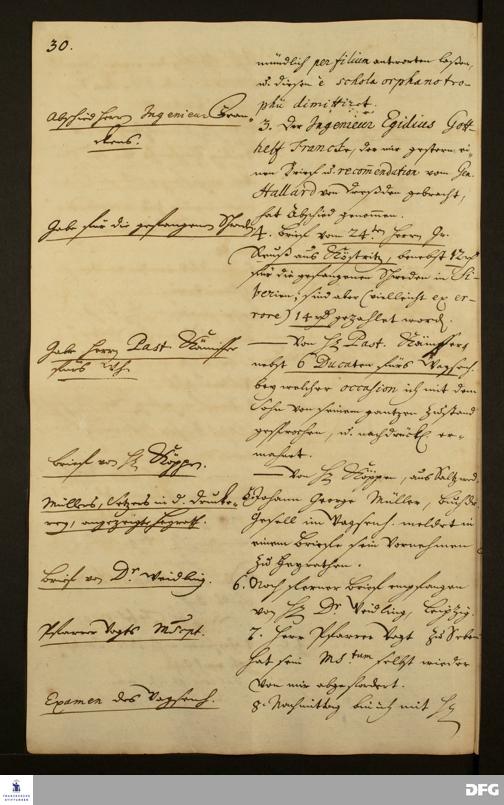 30.
mündlich per filium antworten laßen,
u. diesen è schola orphanotro-
phii dimittiret.
Abschied Herrn Ingenieur Fran-
ckens.
3. Der Ingenieur Egidius Gott-
helff Francke, der mir gestern ei-
nen Brief u. recommendation vom Gen.
Hallard von Dreßden gebracht,
hat Abschied genommen.
Gabe für die gefangenen Schweden
4. Brief vom 24ten Herrn Gr.
Reuß aus Köstritz, benebst 12
für die gefangenen Schweden in Si-
berien; sind aber (vielleicht ex er-
rore) 14 gezahlet worden.
Gabe Herrn Past.
fürs Wh.
— Von H. Past.
nebst 6 Ducaten fürs Waysenh.
bey welcher occasion ich mit dem
Sohn von seinem gantzen Zustand
gesprochen, u. nachdrückl. er-
mahnet.
Brief von H. Köppen.
— Von H. Köppen, aus
Müllers, Setzers in d. Drucke-
rey, angezeigte Heyrath.
5. Johann George Müller, Buchdr.
Gesell im Waysenh. meldet in
einem Briefe sein Vornehmen
zu heyrathen.
Brief von Dr. Weidling.
6. Noch ferner Brief empfangen
von H. Dr. Weidling, Leipzig.
Pfarrer Vogts MScpt.
7. Herr Pfarrer Vogt zu
hat sein MStum selbst wieder
von mir abgefordert.
Examen des Waysenh.
8. Nachmittag bin ich mit H.
FRANCKESCHE
STIFTUNGEN
DFG